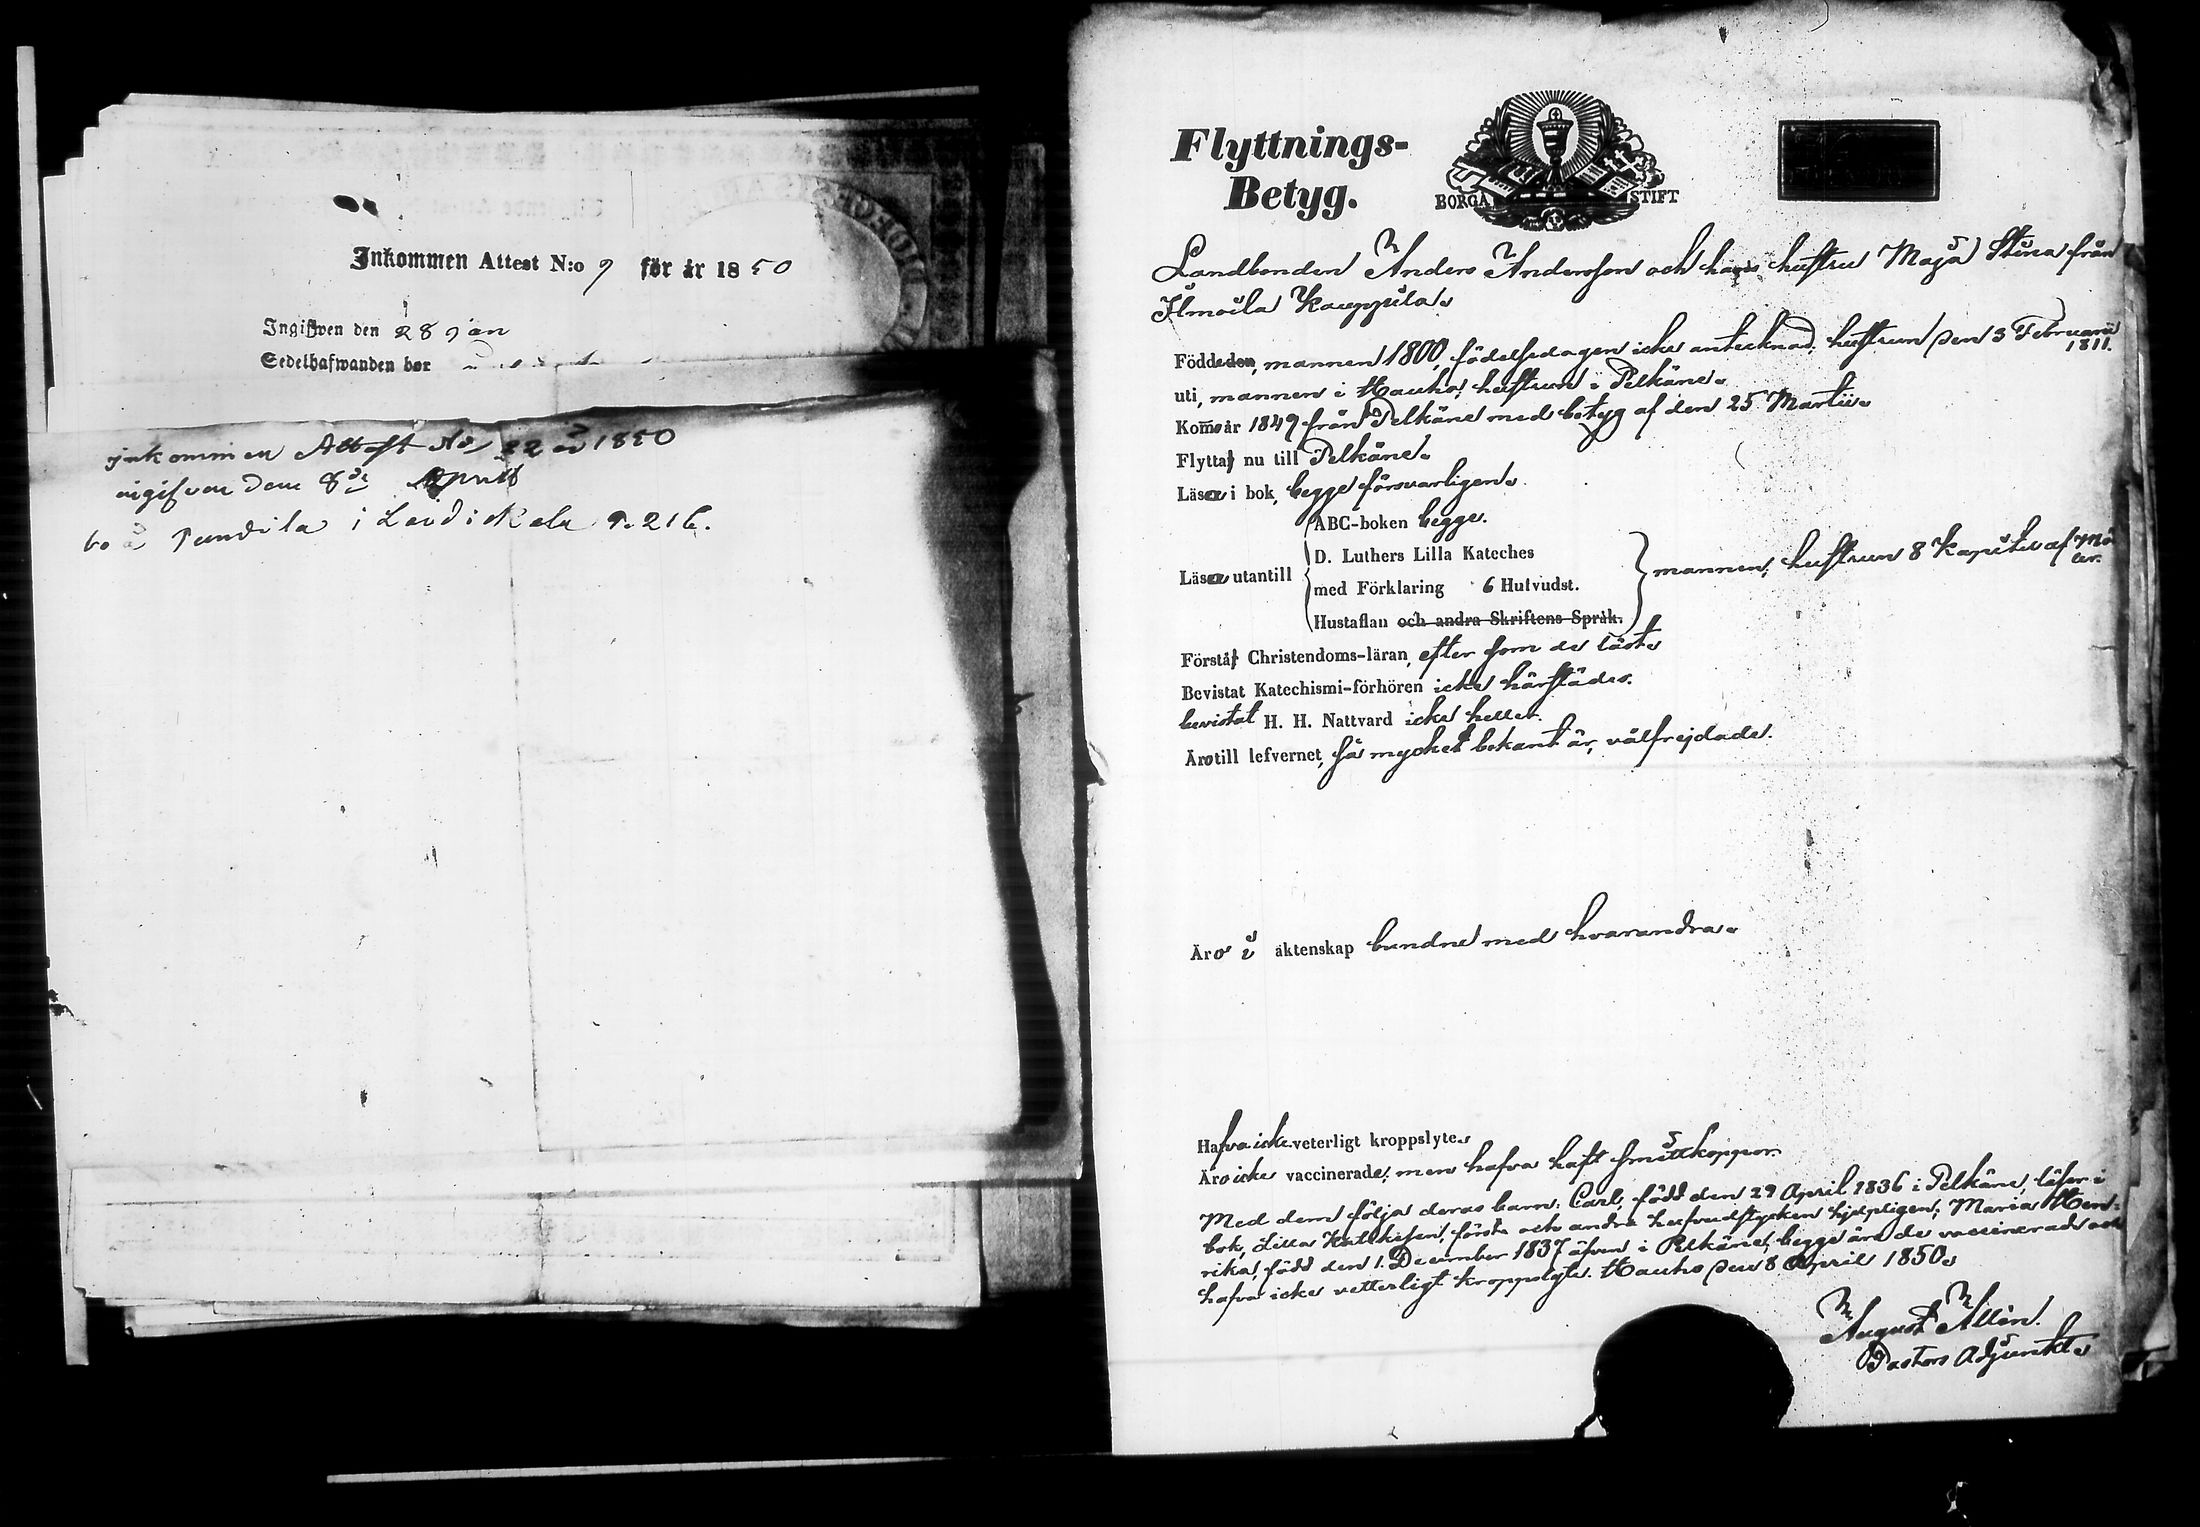 Inkommen Attest N:o 9 för år 1850
Ingifwen den 28 Jan
Sedelhafwanden bor
inkommen Attest No 22 år 1850
ingifven den 8de April
bo å Pundila i Laudickala P. 216.
Flyttnings-
Betyg.
BORGÅ STIFT
Landbonden Anders Andersson och hans hustru Maja Stina från
Ilmoila Kauppila.
Födde den, mannen 1800, födelsedagen icke antecknad; hustrun den 3 Februarii
1811.
uti, mannen i Hauho; hustrun i Pelkäne.
Komo år 1849 från Pelkäne med betyg af den 25 Martii.
Flytta nu till Pelkäne.
Läsa i bok, begge försvarligen.
ABC-boken begge.
D. Luthers Lilla Kateches
Läsa utantill
med Förklaring 6 Hufvudst.
mannen; hustrun 8 Kapitel af
Hustaflan och andra Skriftens Språk.
Förstå Christendoms-läran, efter som de läst.
Bevistat Katechismi-förhören icke härstädes.
bevistat H. H. Nattvard icke heller.
Äro till lefvernet, så mycket bekant är, välfrejdade.
Äro i äktenskap bundne med hvarandra.
Hafva icke veterligt kroppslyte.
Äro icke vaccinerade; men hafva haft smittkoppor.
Med dem följa deras barn: Carl, född den 29 April 1836 i Pelkäne, läser i
bok, Lilla Katekesen, första och andra hufvudstycken hjelpligen; Maria Hen-
rika, född den 1. December 1837 äfven i Pelkäne, begge äro de vaccinerade och
hafva icke vetterligt kroppslyte. Hauho den 8 April 1850.
August Allén.
Pastors Adjunkt.